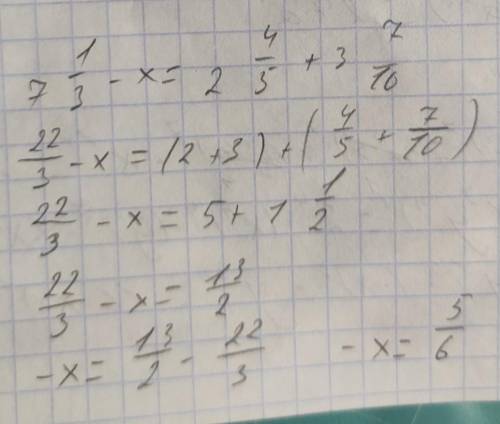 7 1/3 - x = 2 4/5 + 3 7/10
22/3 - x = (2 + 3) + (4/5 + 7/10)
22/3 - x = 5 + 1 1/2
22/3 - x = 13/2
-x = 13/2 - 22/3 - x = 5/6